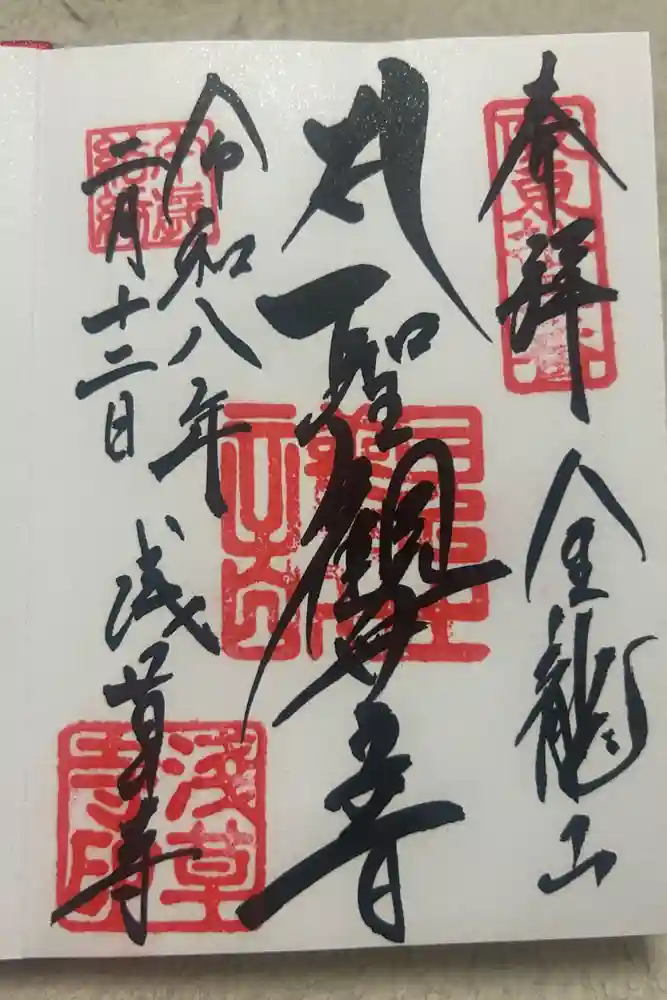 奉拝
金龍山
聖観世音
令和八年
二月十二日
浅草寺
淺草
寺印